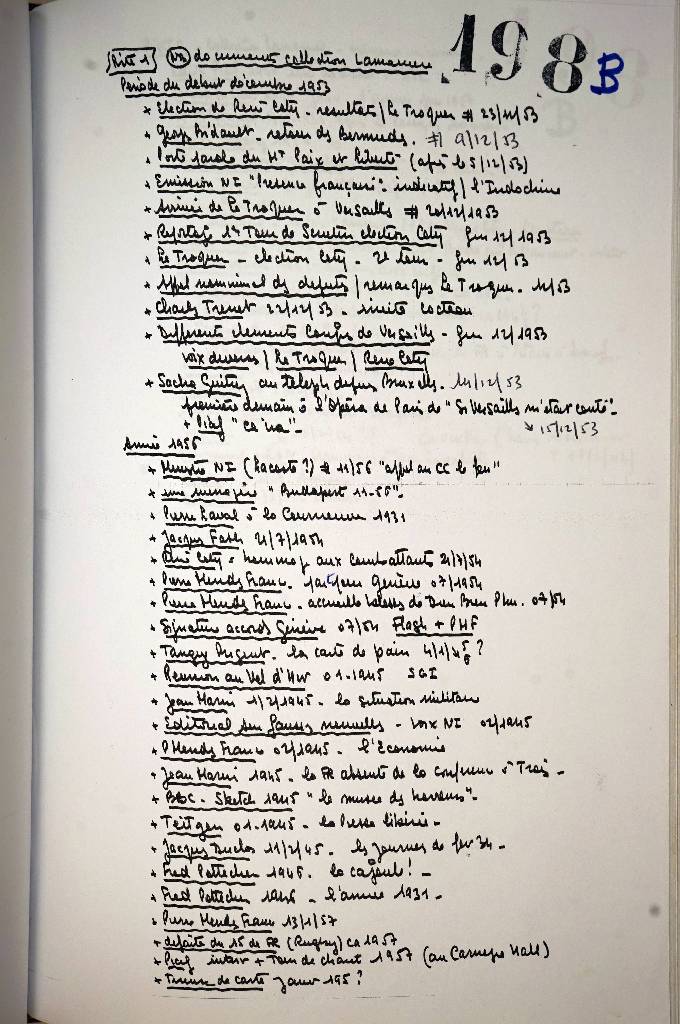 198 B
Piste 1 documents collection Lamarene
Période du début décembre 1953
+ Election de René Coty - resultats / Le Troquer # 23/12/53
+ Georges Bidault - retour des Bermudes. # 9/12/53
+ Porte parole du Mt Paix et Liberté (après le 5/12/53)
+ Emission NI "Presence française" - indicatif / l'Indochine
+ Arrivée de Le Troquer à Versailles # 20/12/1953
+ Reportage 1er Tour de Scrutin election Coty Jrn 12/1953
+ Le Troquer - election Coty - 2e tour - Jrn 12/53
+ Appel nominal des députés / remarques Le Troquer - 12/53
+ Charles Trenet 22/12/53 - imite Cocteau
+ Differents elements Congrès de Versailles - Jrn 12/1953
voix diverses / Le Troquer / René Coty
+ Sacha Guitry au teleph depuis Bruxelles. 14/12/53
première demain à l'Opéra de Paris de "Si Versailles m'était conté" -
+ Piaf "ça ira" - ↘ 15/12/53
Année 1956
+ Ministre NI (Lacoste ?) # 11/56 "appel au CC le feu"
+ une menagère "Budapest 11-56" -
+ Pierre Laval à la Courneuve 1931
+ Jacques Fath 21/7/1954
+ René Coty = hommage aux combattants 21/7/54
+ Pierre Mendès France - Genève 07/1954
+ Pierre Mendès France - accueille blessés de Dien Bien Phu. 07/54
+ Signature accords Genève 07/54 Flash + PMF
+ Tanguy Prigent - la carte de pain 4/1/45 ?
+ Reunion au Vel d'Hiv 01-1945 SGI
+ Jean Marin 1/2/1945 - la situation militaire
+ Editorial sur fausses nouvelles - voix NI 02/1945
+ P Mendès France 02/1945 - l'Economie
+ Jean Marin 1945 - la FR absente de la conference à Trois -
+ BBC - Sketch 1945 "le musée des horreurs" -
+ Teitgen 01-1945 - la Presse libérée -
+ Jacques Duclos 11/2/45 - les journées de fev 34 -
+ Fred Pottecher 1946 - la cagoule ! -
+ Fred Pottecher 1946 - l'année 1931 -
+ Pierre Mendès France 13/1/57
+ defaite du 15 de FR (Rugby) ca 1957
+ Piaf interv + Tour de chant 1957 (au Carnegie Hall)
+ Tireuse de carte Janv 195 ?